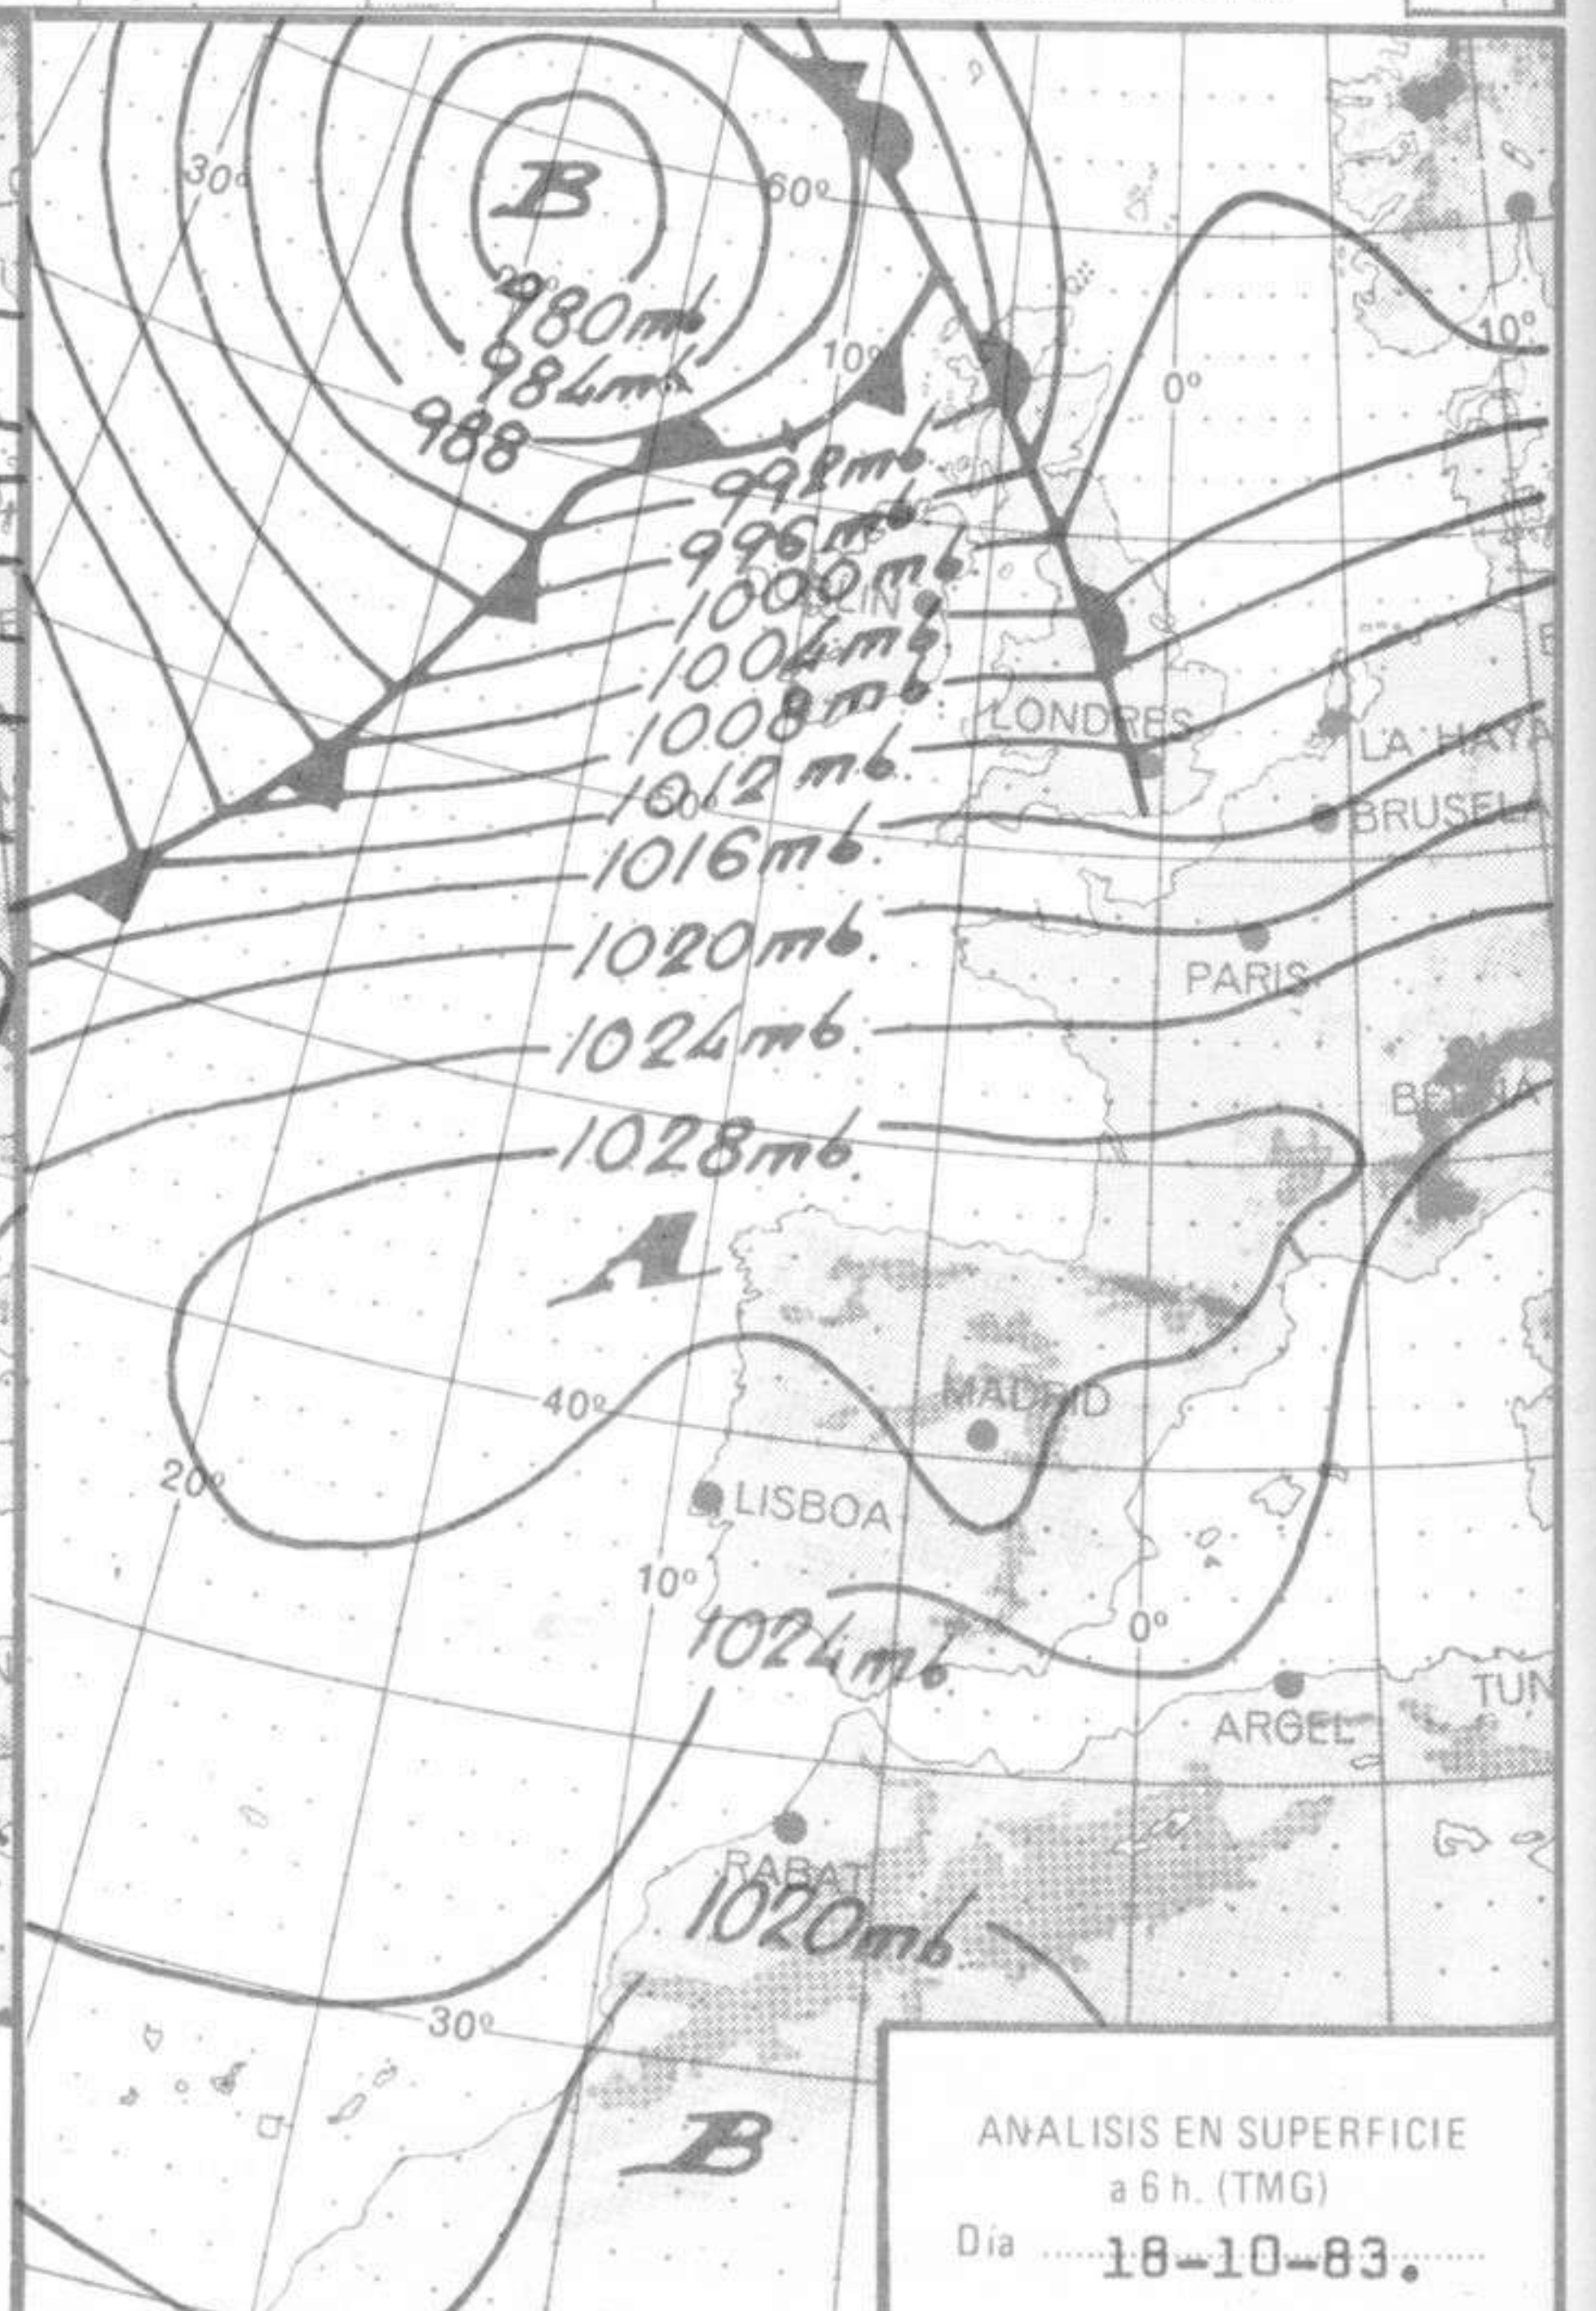 30º
B
60º
980mb
984mb
10º
10º
0º
988
992mb
996mb
1000mb
LIN
1004mb
1008mb
LONDRES
LA HAYA
1012mb.
BRUSELA
1016mb.
1020mb.
PARIS
1024mb.
BERNA
1028mb.
A
MADRID
40º
20º
LISBOA
10º
0º
1024mb
TUN
ARGEL
RABAT
1020mb
30º
B
ANALISIS EN SUPERFICIE
a 6 h. (TMG)
Día 18-10-83.